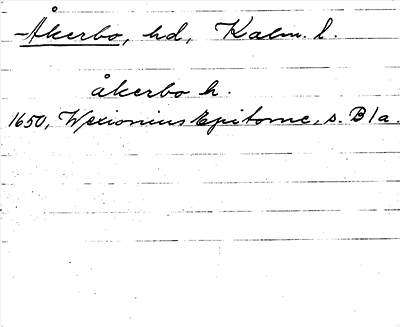 Åkerbo, hd, Kalm. l.
åkerbo h.
1650, Wexionius Epitome, s. B1a.